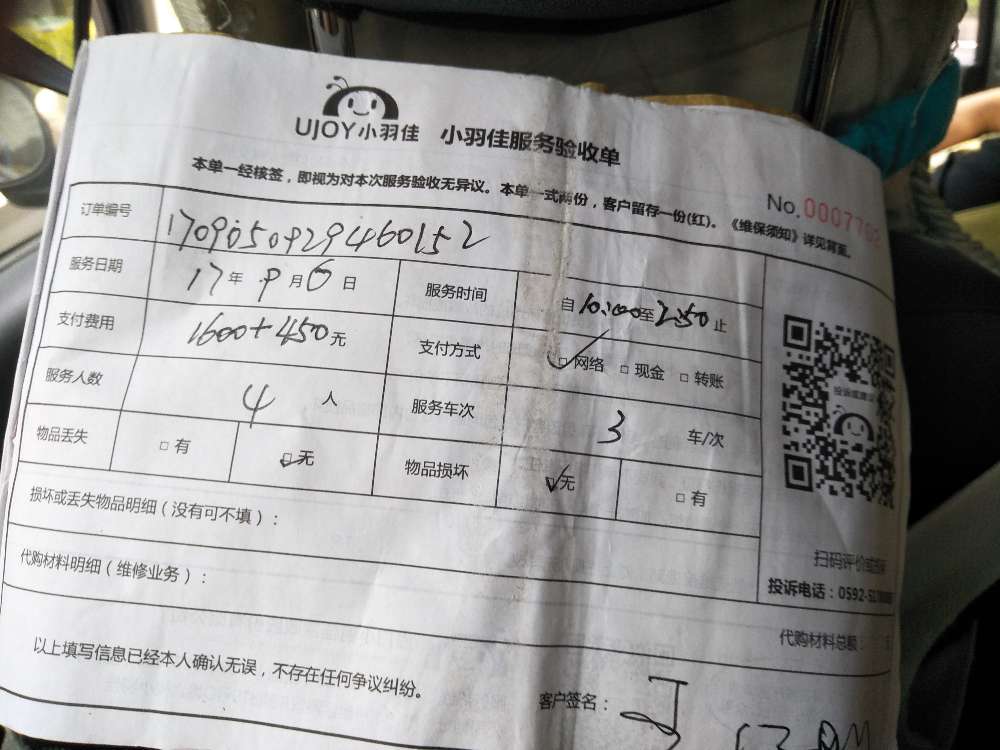 UJOY小羽佳 小羽佳服务验收单
本单一经核签，即视为对本次服务验收无异议。本单一式两份，客户留存一份(红)。《维保须知》详见背面。
No.00077
订单编号 17090509429460152
服务日期 17年9月6日 服务时间 自10:00至2:50止
支付费用 1600+450元 支付方式 网络 现金 转账
服务人数 4人 服务车次 3车/次
物品丢失 有 无 物品损坏 无 有
投诉或建议
损坏或丢失物品明细（没有可不填）：
扫码评价或
代购材料明细（维修业务）：
投诉电话：0592-5
代购材料总额：
以上填写信息已经本人确认无误，不存在任何争议纠纷。
客户签名：